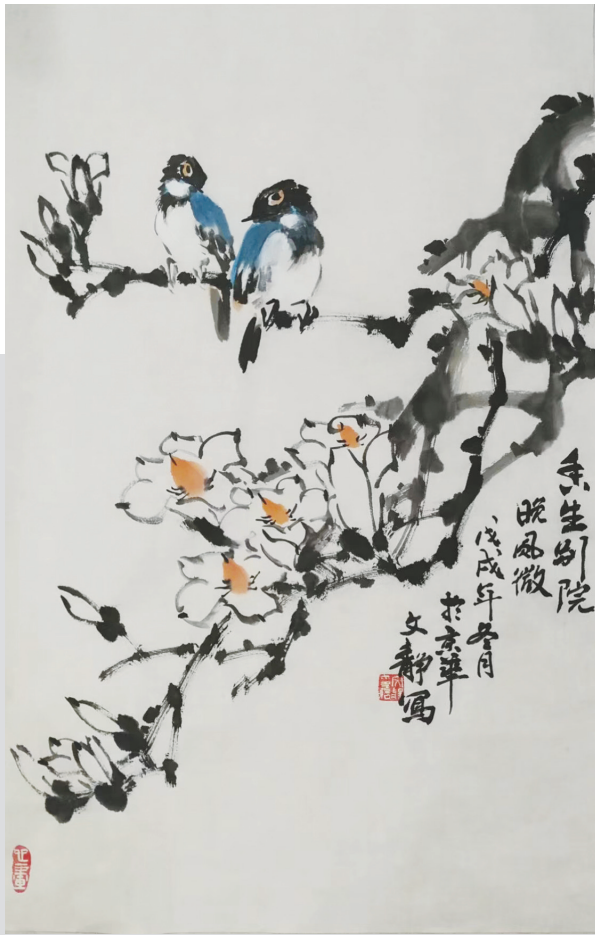 香生别院
晚风微
戊戌年冬月
於京華
文静寫